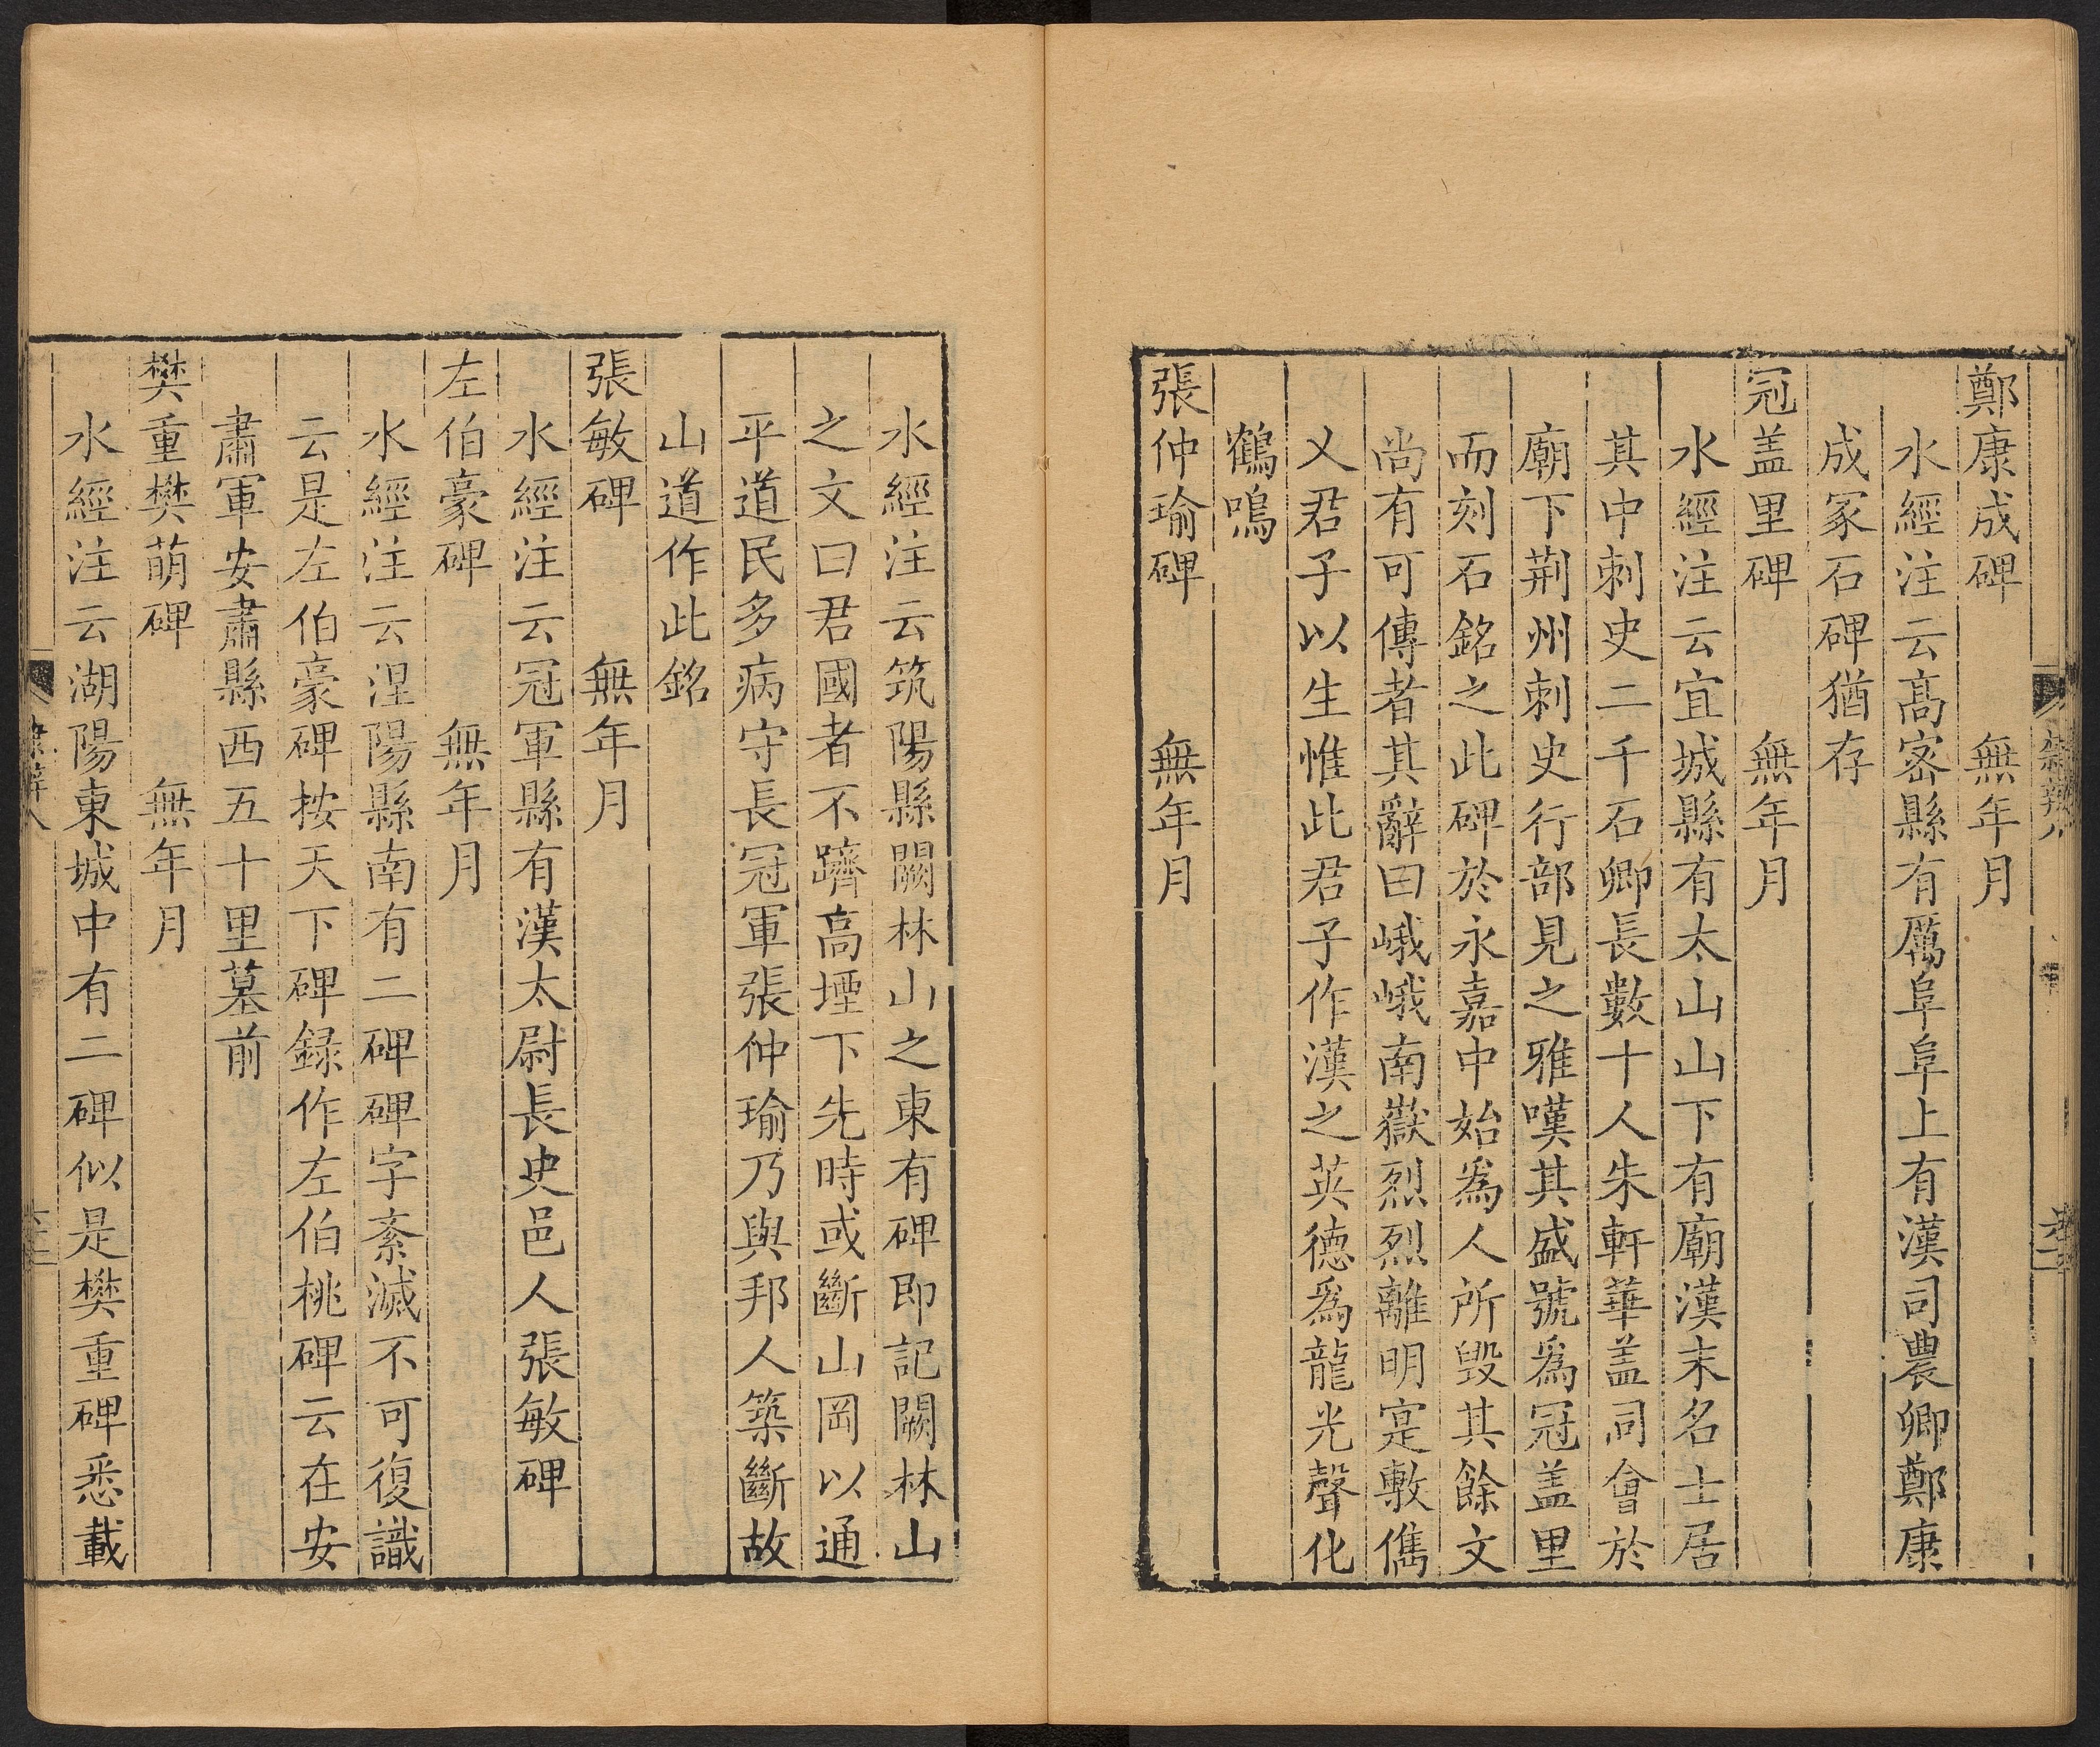 鄭康成碑　無年月
水經注云高密縣有厲阜阜上有漢司農卿鄭康
成冢石碑猶存
冠盖里碑　無年月
水經注云宜城縣有太山山下有廟漢末名士居
其中刺史二千石卿長數十人朱軒華盖同會於
廟下荆州刺史行部見之雅嘆其盛號爲冠盖里
而刻石銘之此碑於永嘉中始爲人所毁其餘文
尚有可傳者其辭曰峨峨南嶽烈烈離明寔敷儁
乂君子以生惟此君子作漢之英德爲龍光聲化
鶴鳴
張仲瑜碑　無年月
水經注云筑陽縣闕林山之東有碑即記闕林山
之文曰君國者不躋高堙下先時或斷山岡以通
平道民多病守長冠軍張仲瑜乃與邦人築斷故
山道作此銘
張敏碑　無年月
水經注云冠軍縣有漢太尉長史邑人張敏碑
左伯豪碑　無年月
水經注云涅陽縣南有二碑碑字紊滅不可復識
云是左伯豪碑按天下碑録作左伯桃碑云在安
肅軍安肅縣西五十里墓前
樊重樊萌碑　無年月
水經注云湖陽東城中有二碑似是樊重碑悉載